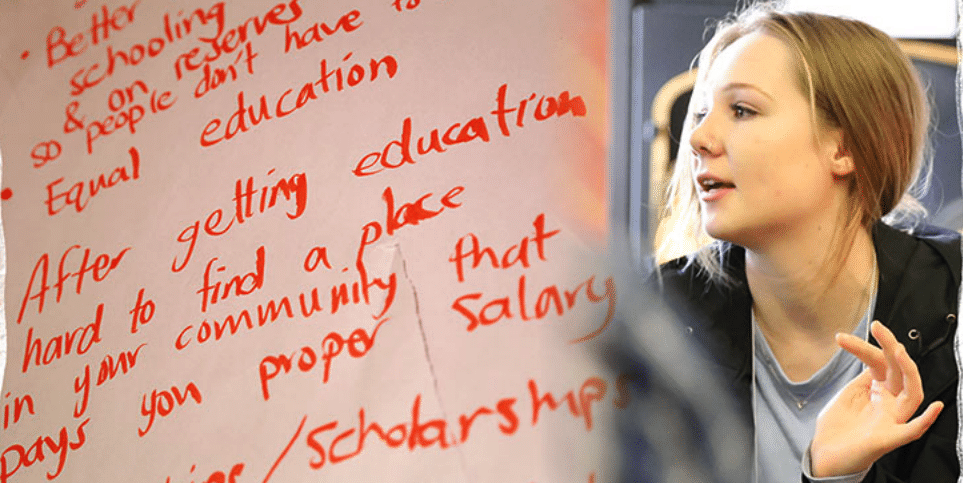 • Better
schooling
& on reserves
so people don't have to
• Equal education
After getting education
hard to find a place
in your community that
pays you proper salary
/Scholarships